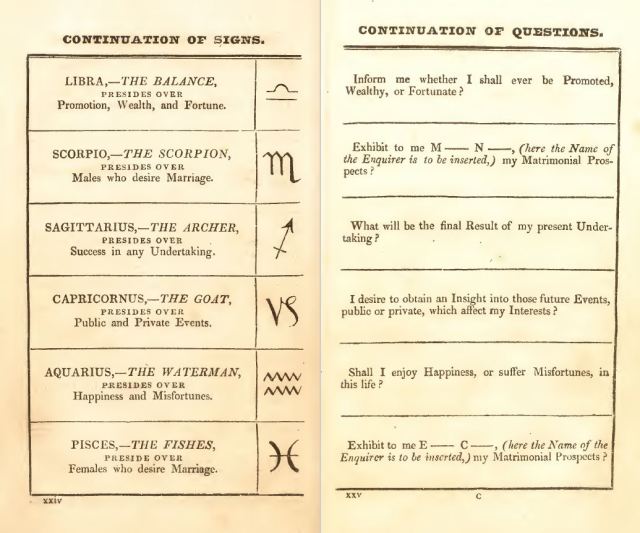 CONTINUATION OF SIGNS.
LIBRA,—THE BALANCE,
PRESIDES OVER
Promotion, Wealth, and Fortune.
♎
SCORPIO,—THE SCORPION,
PRESIDES OVER
Males who desire Marriage.
♏
SAGITTARIUS,—THE ARCHER,
PRESIDES OVER
Success in any Undertaking.
♐
CAPRICORNUS,—THE GOAT,
PRESIDES OVER
Public and Private Events.
♑
AQUARIUS,—THE WATERMAN,
PRESIDES OVER
Happiness and Misfortunes.
♒
PISCES,—THE FISHES,
PRESIDE OVER
Females who desire Marriage.
♓
XXIV
CONTINUATION OF QUESTIONS.
Inform me whether I shall ever be Promoted,
Wealthy, or Fortunate?
Exhibit to me M —— N ——, (here the Name of
the Enquirer is to be inserted,) my Matrimonial Pros-
pects?
What will be the final Result of my present Under-
taking?
I desire to obtain an Insight into those future Events,
public or private, which affect my Interests?
Shall I enjoy Happiness, or suffer Misfortunes, in
this life?
Exhibit to me E —— C ——, (here the Name of the
Enquirer is to be inserted,) my Matrimonial Prospects?
XXV C